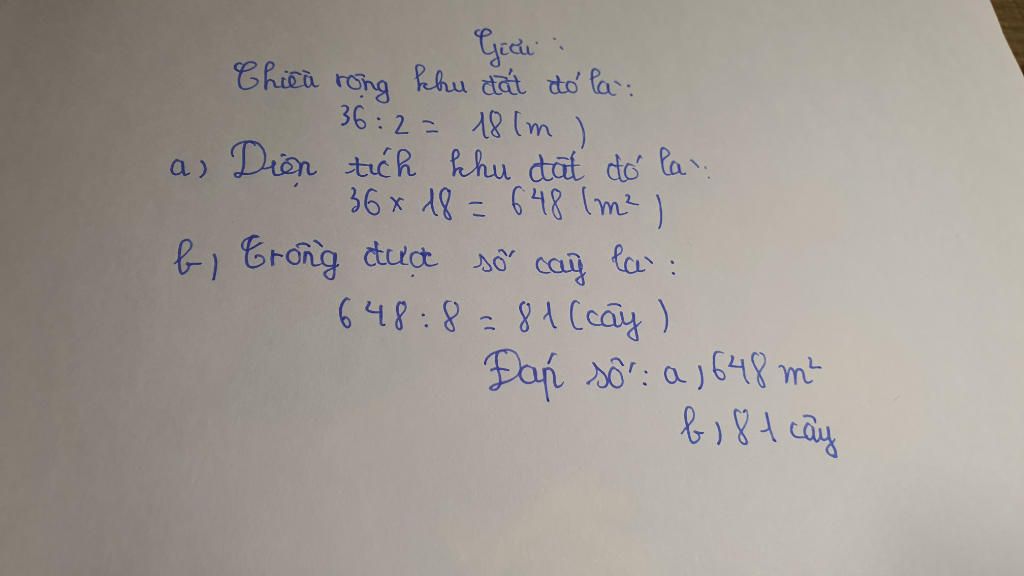 Giải:
Chiều rộng khu đất đó là:
36 : 2 = 18 (m)
a, Diện tích khu đất đó là:
36 × 18 = 648 (m²)
b, Trồng được số cây là:
648 : 8 = 81 (cây)
Đáp số: a, 648 m²
b, 81 cây